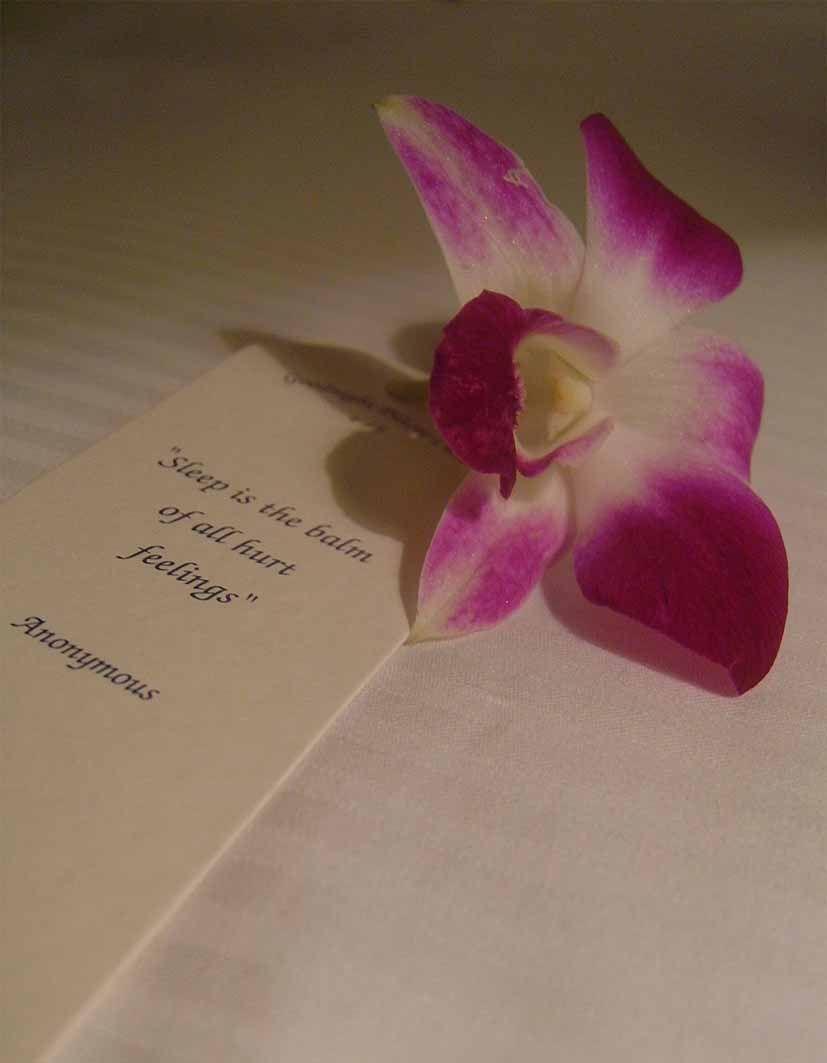 "Sleep is the balm
of all hurt
feelings"
Anonymous